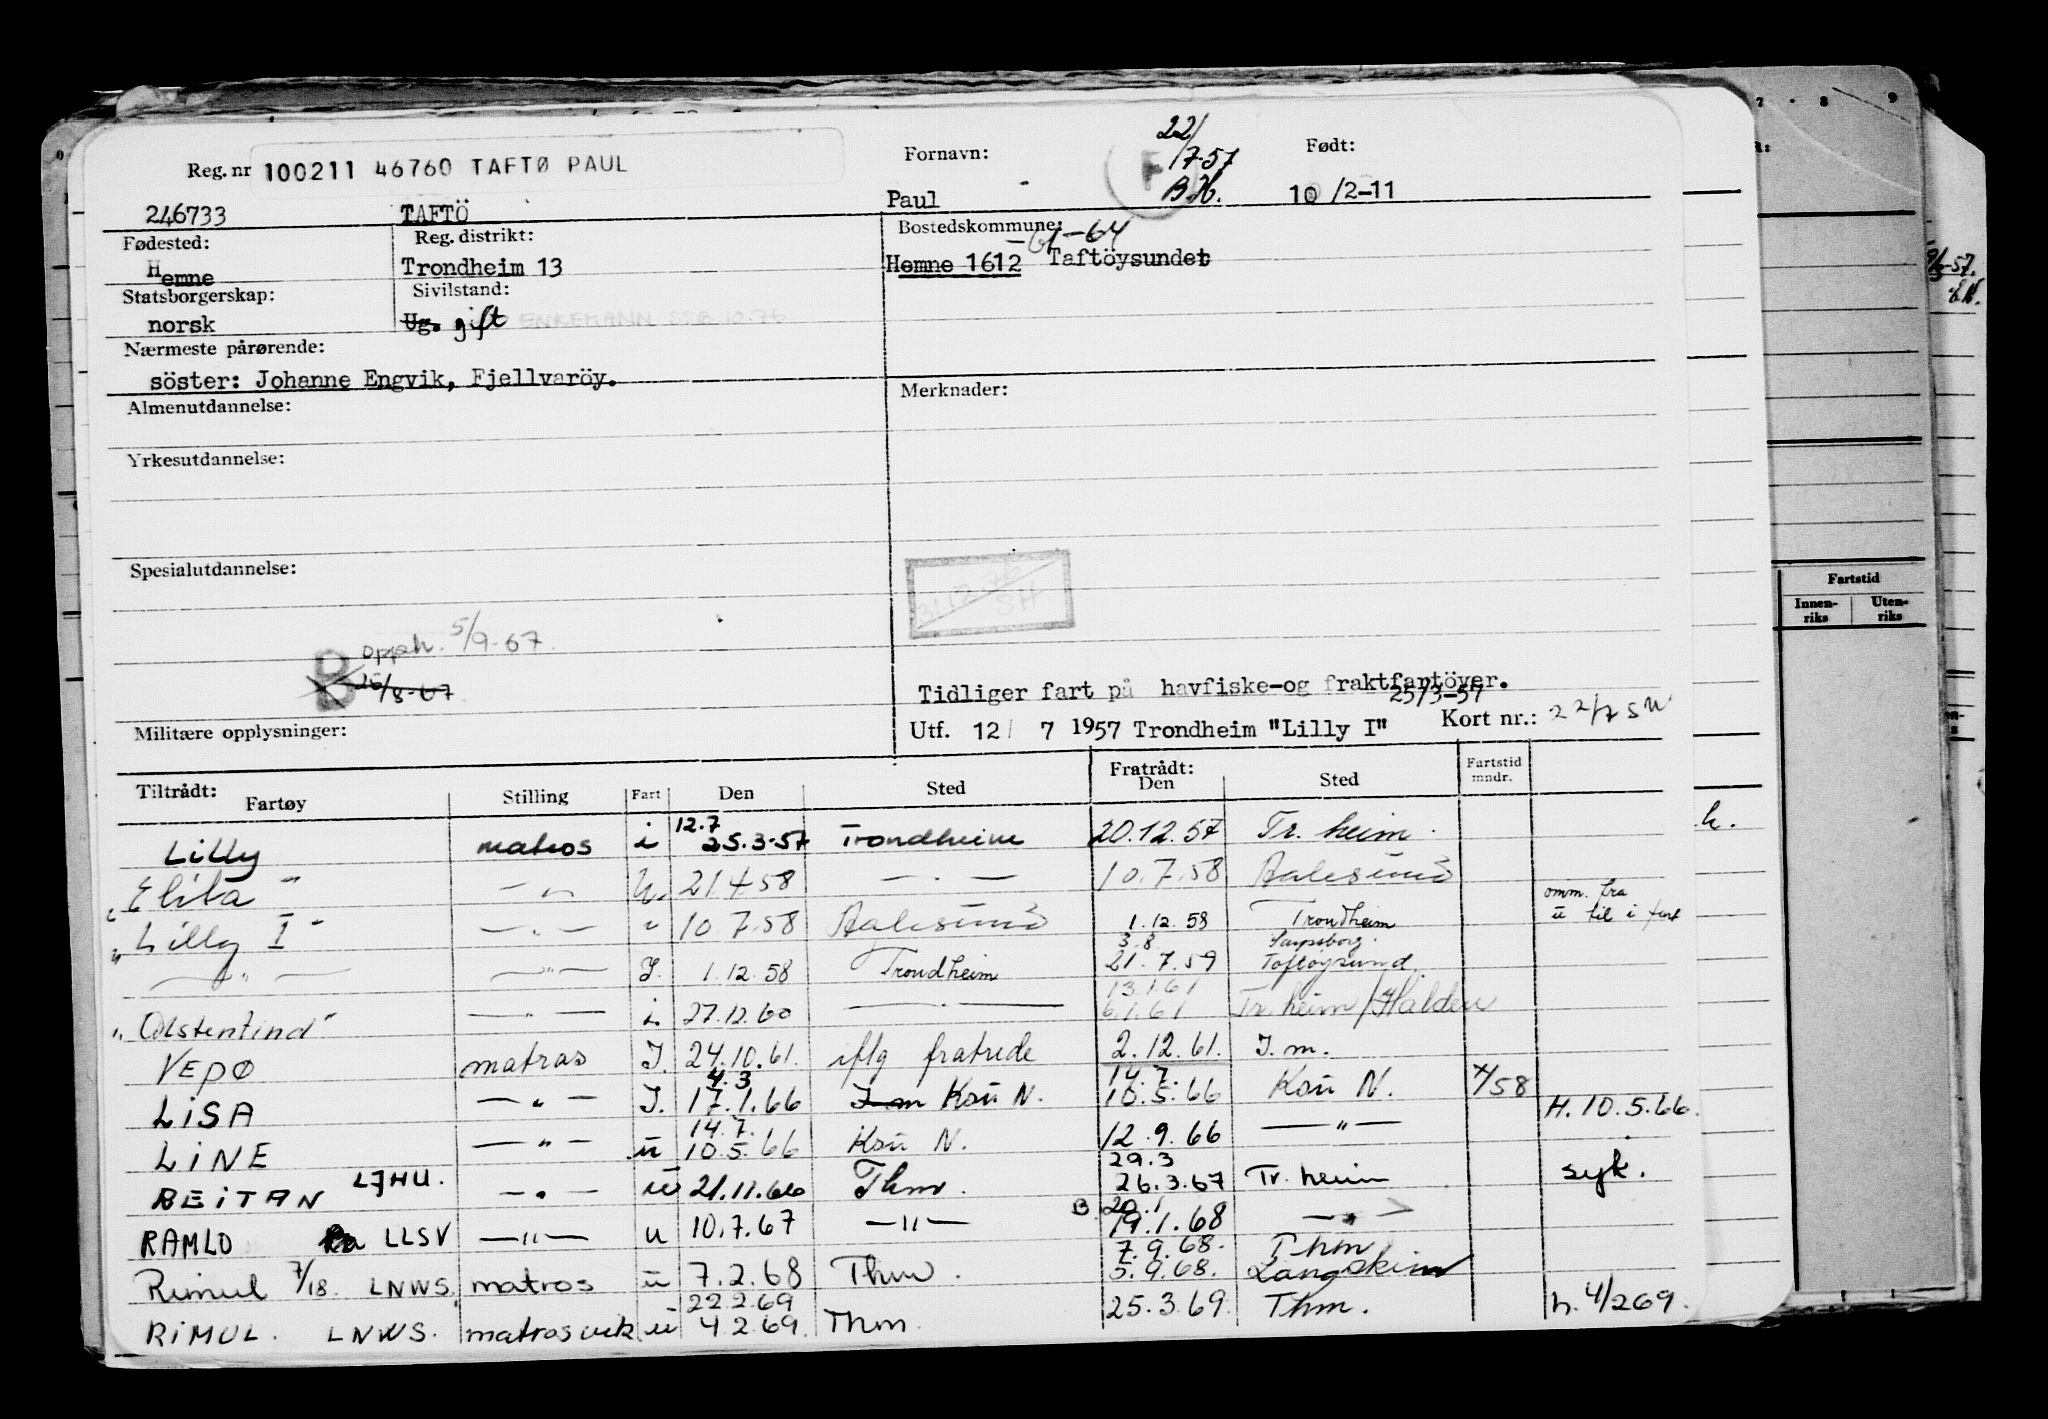 Reg. nr 100211 46760 TAFTØ PAUL
Fornavn: 22/7-57 B.H. Født:
246733 TAFTÖ Paul F 10/2-11
Fødested: Reg. distrikt: Bostedskommune: 61-64
Hemne Trondheim 13 Hemne 1612 Taftöysundet
Statsborgerskap: Sivilstand:
norsk Ug. gift ENKEMANN SSB.10.76
Nærmeste pårørende:
söster: Johanne Engvik, Fjellvaröy.
Almenutdannelse: Merknader:
Yrkesutdannelse:
Spesialutdannelse:
SH
Opph. 5/9-67.
B 26/8-67
Tidliger fart på havfiske-og fraktfartöyer.
25/3-57
Militære opplysninger: Utf. 12/ 7 1957 Trondheim "Lilly I" Kort nr.: 22/7
Tiltrådt: Fratrådt: Fartstid mndr.
Fartøy Stilling Fart Den Sted Den Sted
12.7
Lilly matros i 25.3-57 Trondheim 20.12.57 Tr. heim.
"Elita" — " — U. 21 4 58 — " — 10.7.58 Aalesund
"Lilly I" — " — " 10.7.58 Aalesund 1.12.58 Trondheim omm. fra u til i fart
3.8 Sarpsborg.
— " — — " — I. 1.12.58 Trondheim 21.7.59 Taftöysund
13.1.61
"Olstentind" — " — i. 27.12.60 — " — 6.1.61 Tr. heim/Halden
VEPØ matros I. 24.10.61. iflg fratrede 2.12.61. I.m.
4.3 14.7.
LISA — " — I. 17.1.66 I.m Krsu N. 10.5.66 Krsu N. 4/58 H. 10.5.66.
14.7.
LINE — " — u 10.5.66 Krsu N. 12.9.66 — " —
29.3
BEITAN LJHU. — " — u 21.11.66 Thm. 26.3.67 Tr. heim syk.
20.1
RAMLO LLSV — " — u 10.7.67 — " — B 19.1.68 — " —
7.9.68. Thm
Rimul 7/18. LNWS. matros u 7.2.68 Thm. 5.9.68.
22.2.69
RIMUL. LNWS. matros vik u 4 2.69. Thm. 25.3.69. Thm. h. 4/269.
7 . 8 9
Fartstid
Innenriks Utenriks
h.